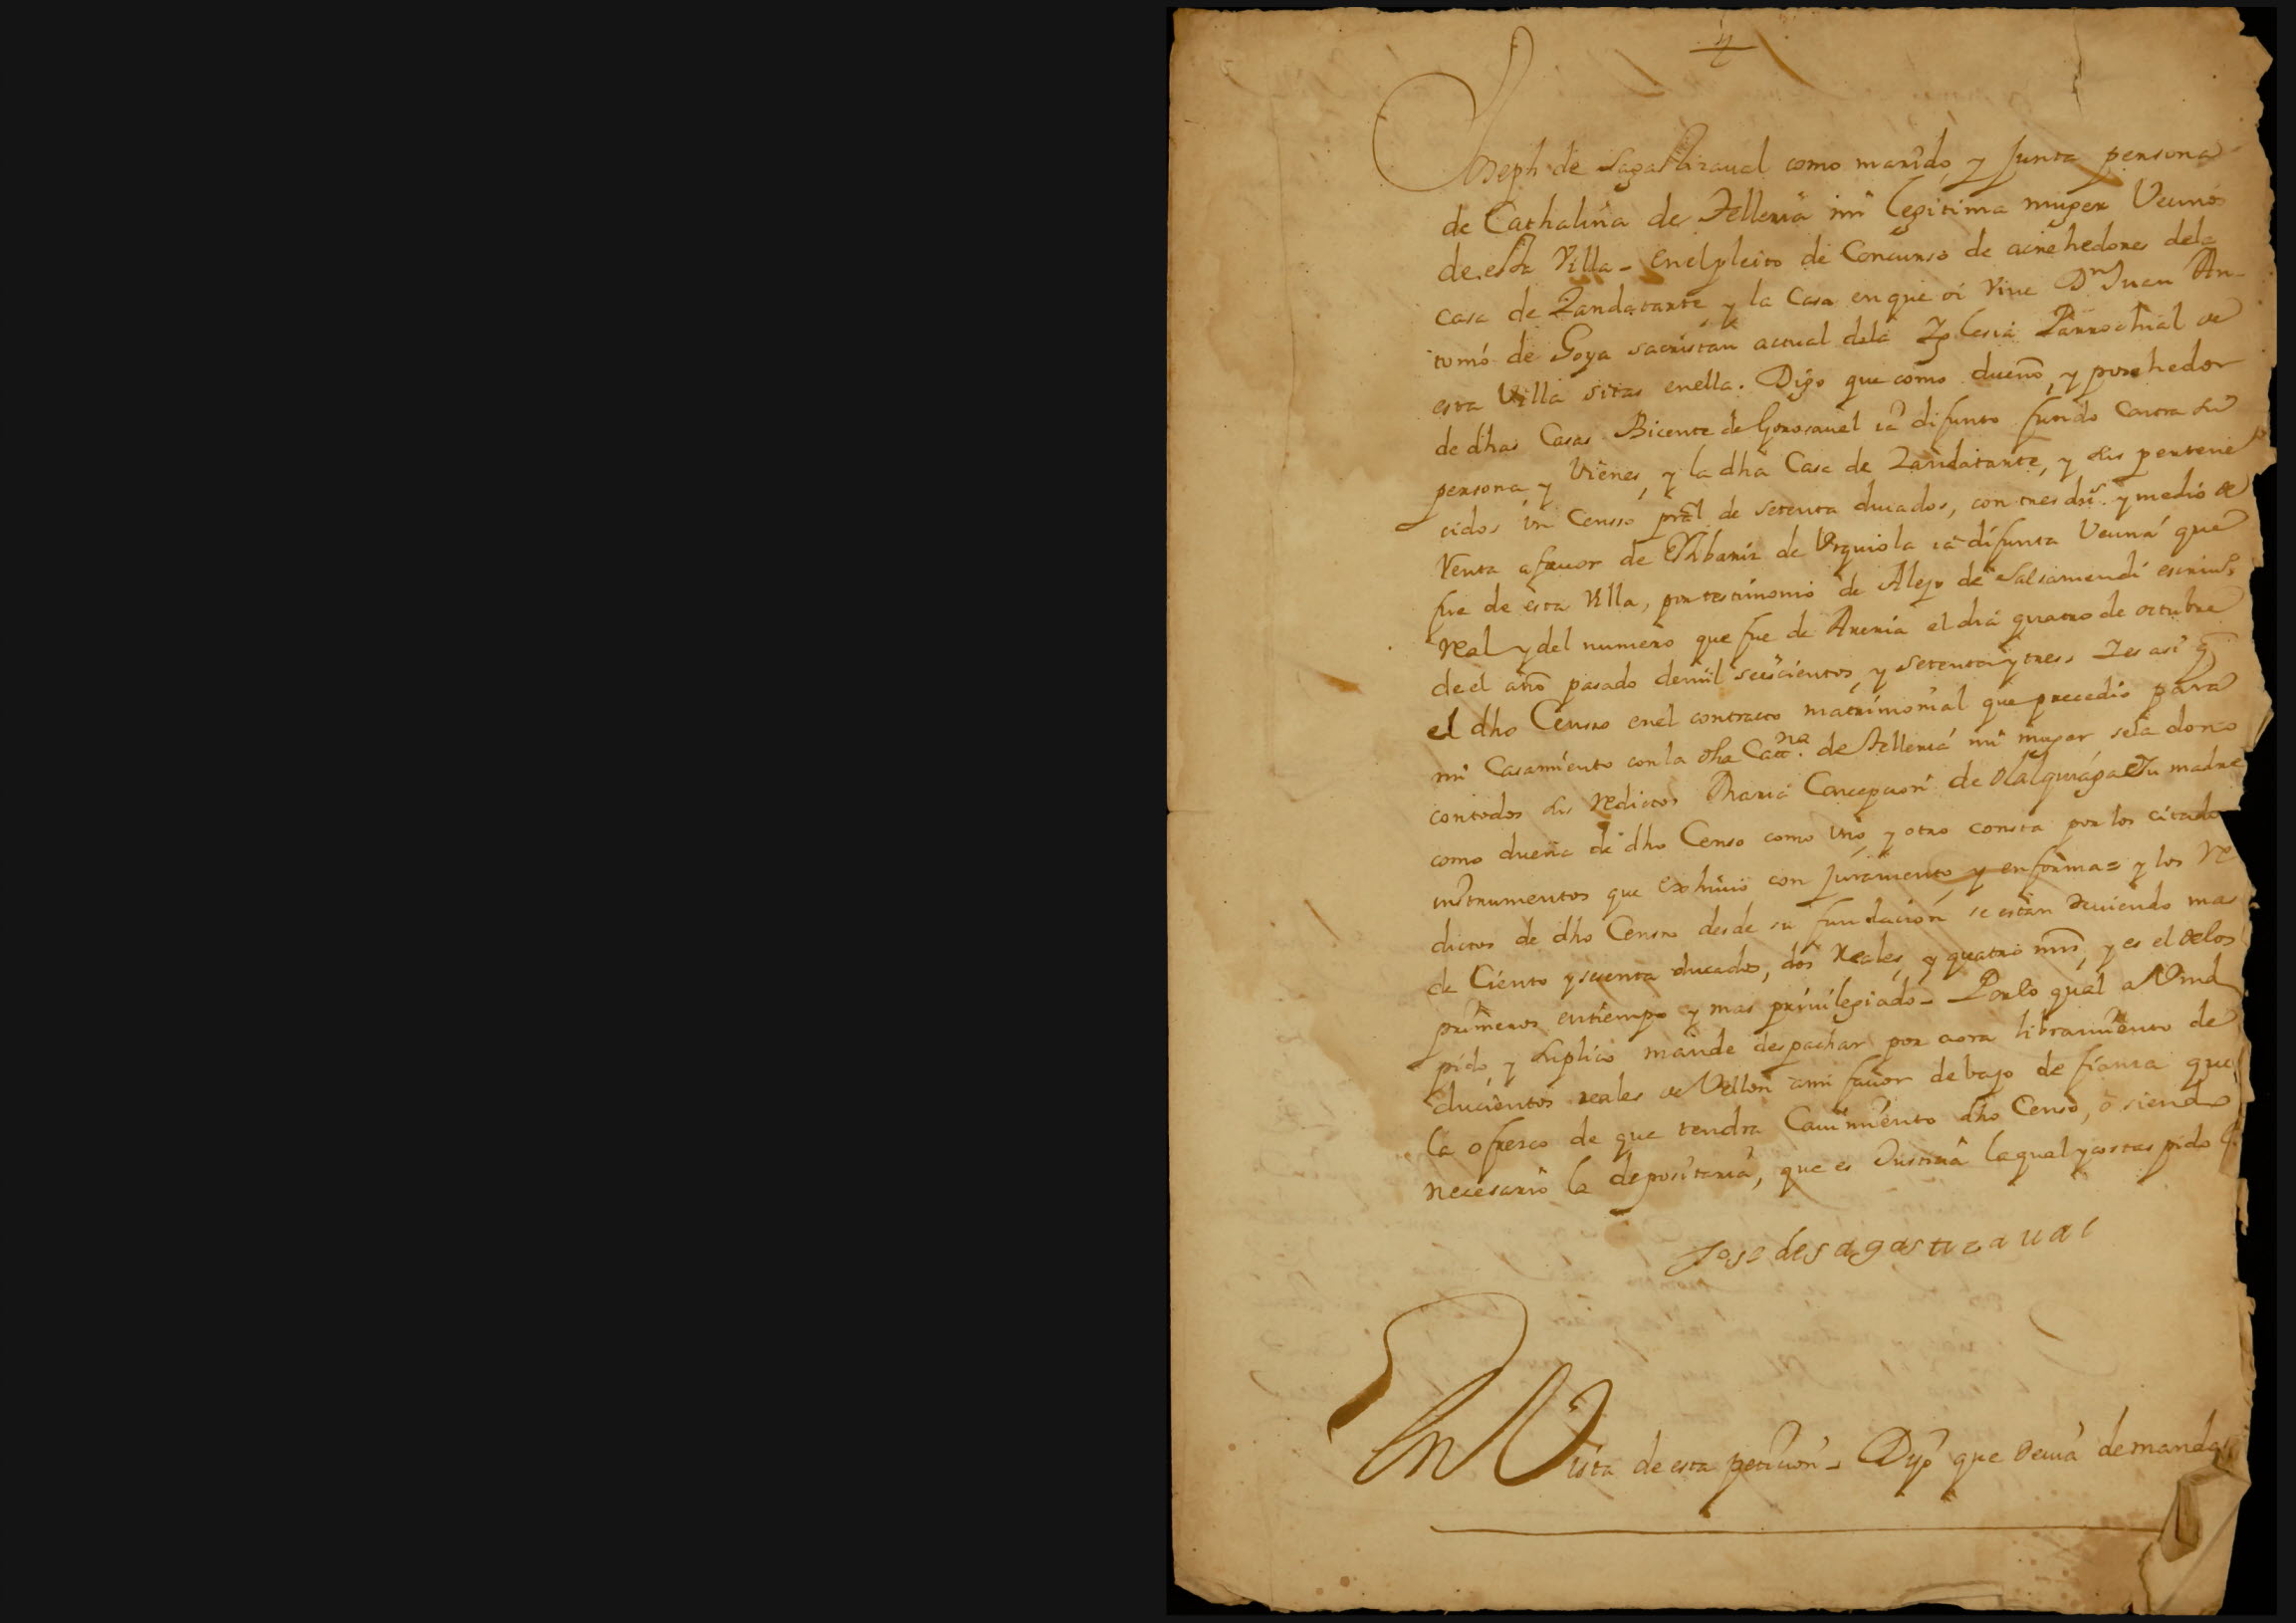 Joseph de Sagastizaval como marido, y Junta persona
de Cathalina de Telleria mi legitima muger Vecinos
de esta Villa - enel pleito de Concurso de acrehedores dela
casa de Zandatarte, y la Casa en que oi Viue Dn Juan An-
tomò de Goya sacristan actual dela Iglesia Parrochial de
esta Villa sitas enella. Digo que como dueño, y posehedor
de dhas Casas Bicente de Gorosauel ia difunto fundo Contra su
persona, y Vienes, y la dha Casa de Zandatarte, y sus pertene
cidos vn Censso pral de setenta ducados, con tres dos. y medio de
Renta a fauor de de Vrquiola ia difunta Vecina que
fue de esta Villa, por testimonio de Alejo de Salsamendi escriuo
Real y del numero que fue de Areria el dia quatro de octubre
de el año pasado demil seiscientos, y setenta y tres. Y es asi q
el dho Censso enel contracto matrimonial que precedio para
mi Casamiento con la dha Catna. de Telleria mi muger sela dono
contodos sus Redictos Maria Concepcion de Olalquiaga su madre
como dueña de dho Censo como Vno, y otro consta por los citado
instrumentos que Exhiuio con Juramento, y en forma = y los Re
dictos de dho Censso desde su fundacion se estan deuiendo mas
de Ciento y sesenta ducados, dos Reales, y quatro mrs, y es el delos
primeros entiempo y mas priuilegiado - Porlo qual a Vmd
pido, y suplico mande despachar por aora libramiento de
ducientos reales de Vellon ami fauor debajo de fianza que
la ofresco de que tendra Cauimiento dho Censo, o siendo
necesario la depositaria, que es Justicia la qual y costas pido
Jose desagastizaual
En Vista de esta peticion - Dijo que deuia demandar